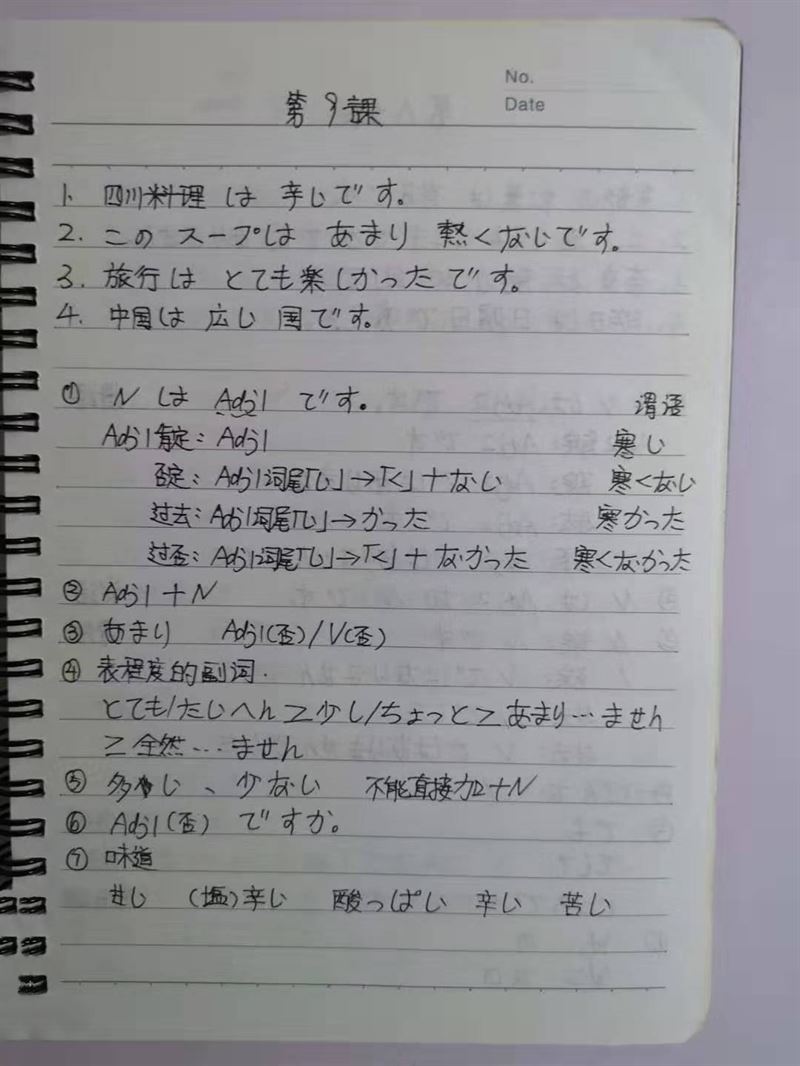 No.
Date
第9課
1. 四川料理は 辛いです。
2. このスープは あまり 熱くないです。
3. 旅行は とても楽しかったです。
4. 中国は 広い 国です。
① N は Adj1 です。 谓语
Adj1肯定: Adj1 寒い
否定: Adj1词尾「い」→「く」+ない 寒くない
过去: Adj1词尾「い」→かった 寒かった
过否: Adj1词尾「い」→「く」+なかった 寒くなかった
② Adj1+N
③ あまり Adj1(否)/V(否)
④ 表程度的副词.
とても/たいへん≥少し/ちょっと≥あまり…ません
≥全然…ません
⑤ 多い、少ない 不能直接加+N
⑥ Adj1(否) ですか。
⑦ 味道
甘い (塩)辛い 酸っぱい 辛い 苦い